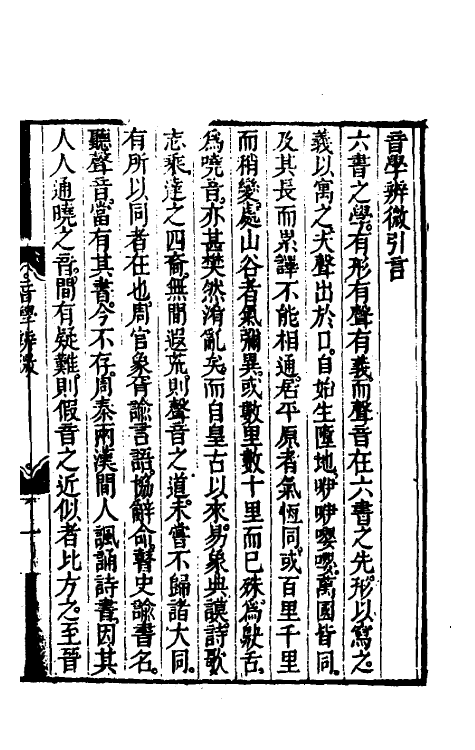 音學辨微引言
六書之學。有形有聲有義。而聲音在六書之先。形以寫之。
義以寓之。夫聲出於口。自始生墮地。咿咿嚶嚶。萬國皆同。
及其長而累譯不能相通。居平原者氣恆同。或百里千里
而稍變。處山谷者氣彌異。或數里數十里而已殊。為鴃舌。
為嘵音。亦甚樊然淆亂矣。而自皇古以來。易象典謨。詩歌
志乘。達之四裔。無間遐荒。則聲音之道。未嘗不歸諸大同。
有所以同者在也。周官象胥諭言語。協辭命。瞽史諭書名。
聽聲音。當有其書。今不存。周秦兩漢間人諷誦詩書。因其
人人通曉之音。間有疑難則假音之近似者比方之。至晉
音學辨微